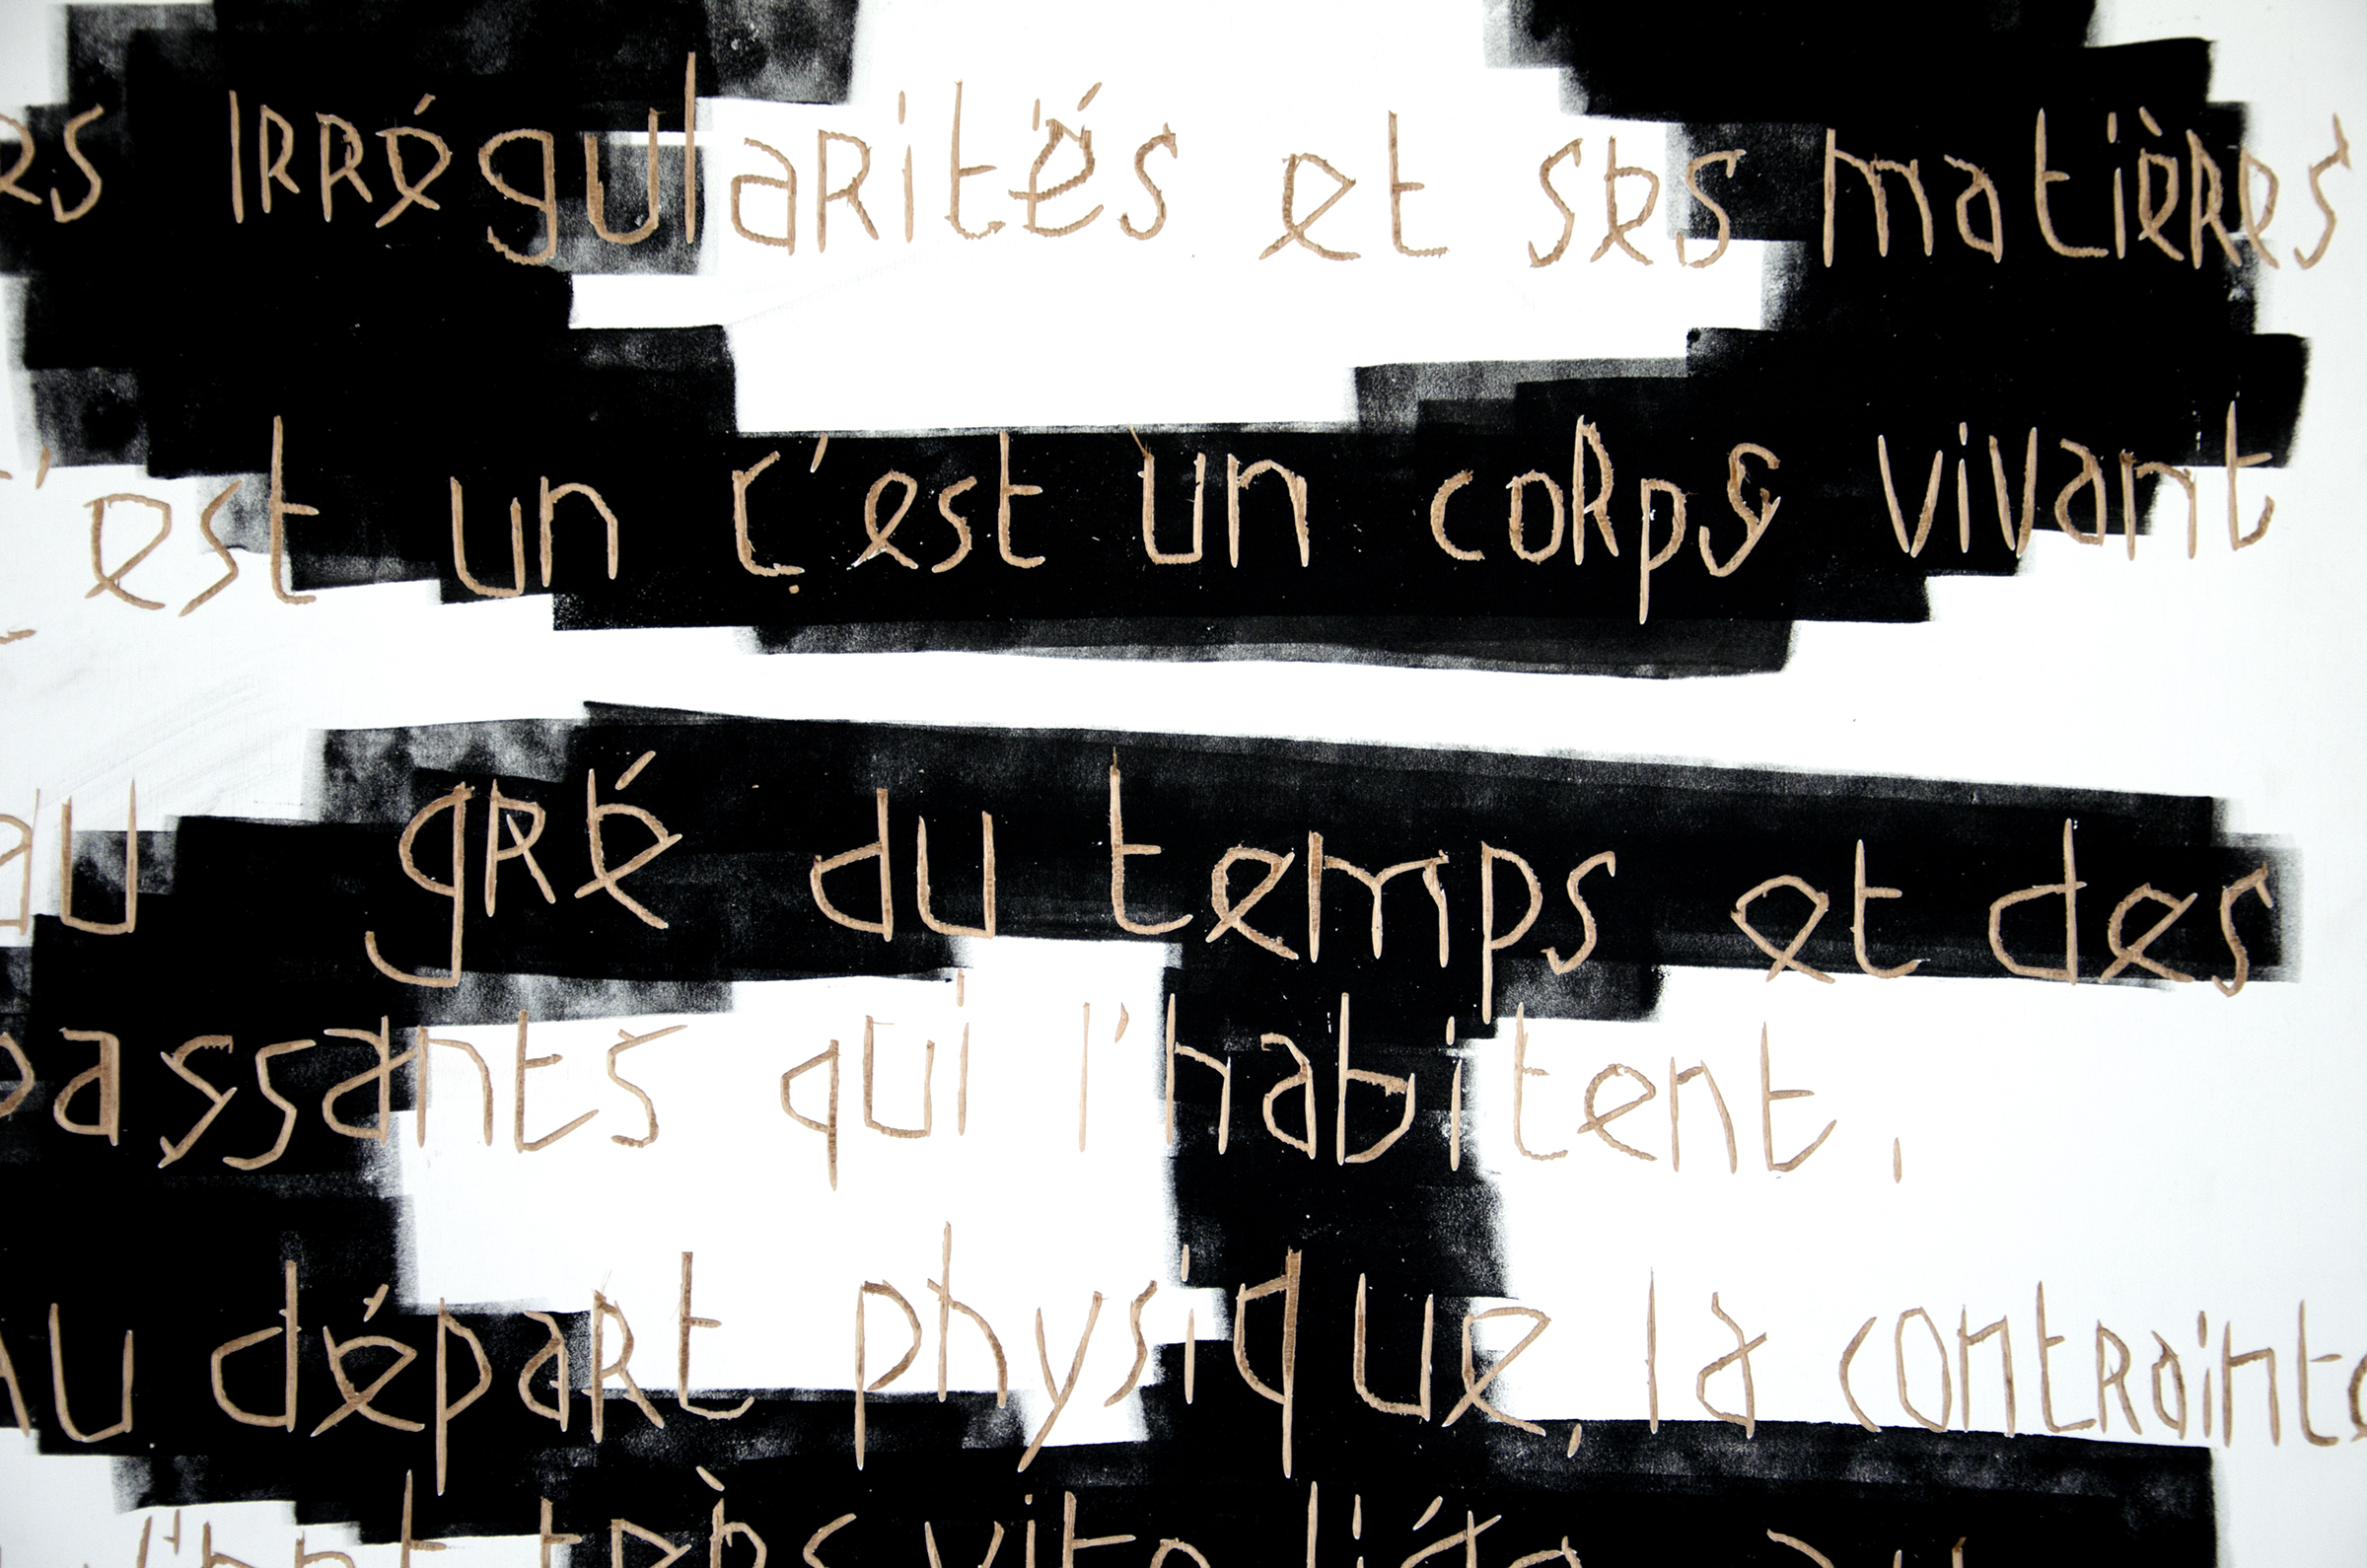 es irrégularités et ses matières
c'est un c'est un corps vivant
au gré du temps et des
passants qui l'habitent.
Au départ physique, la contrainte
s'est très vite liée au